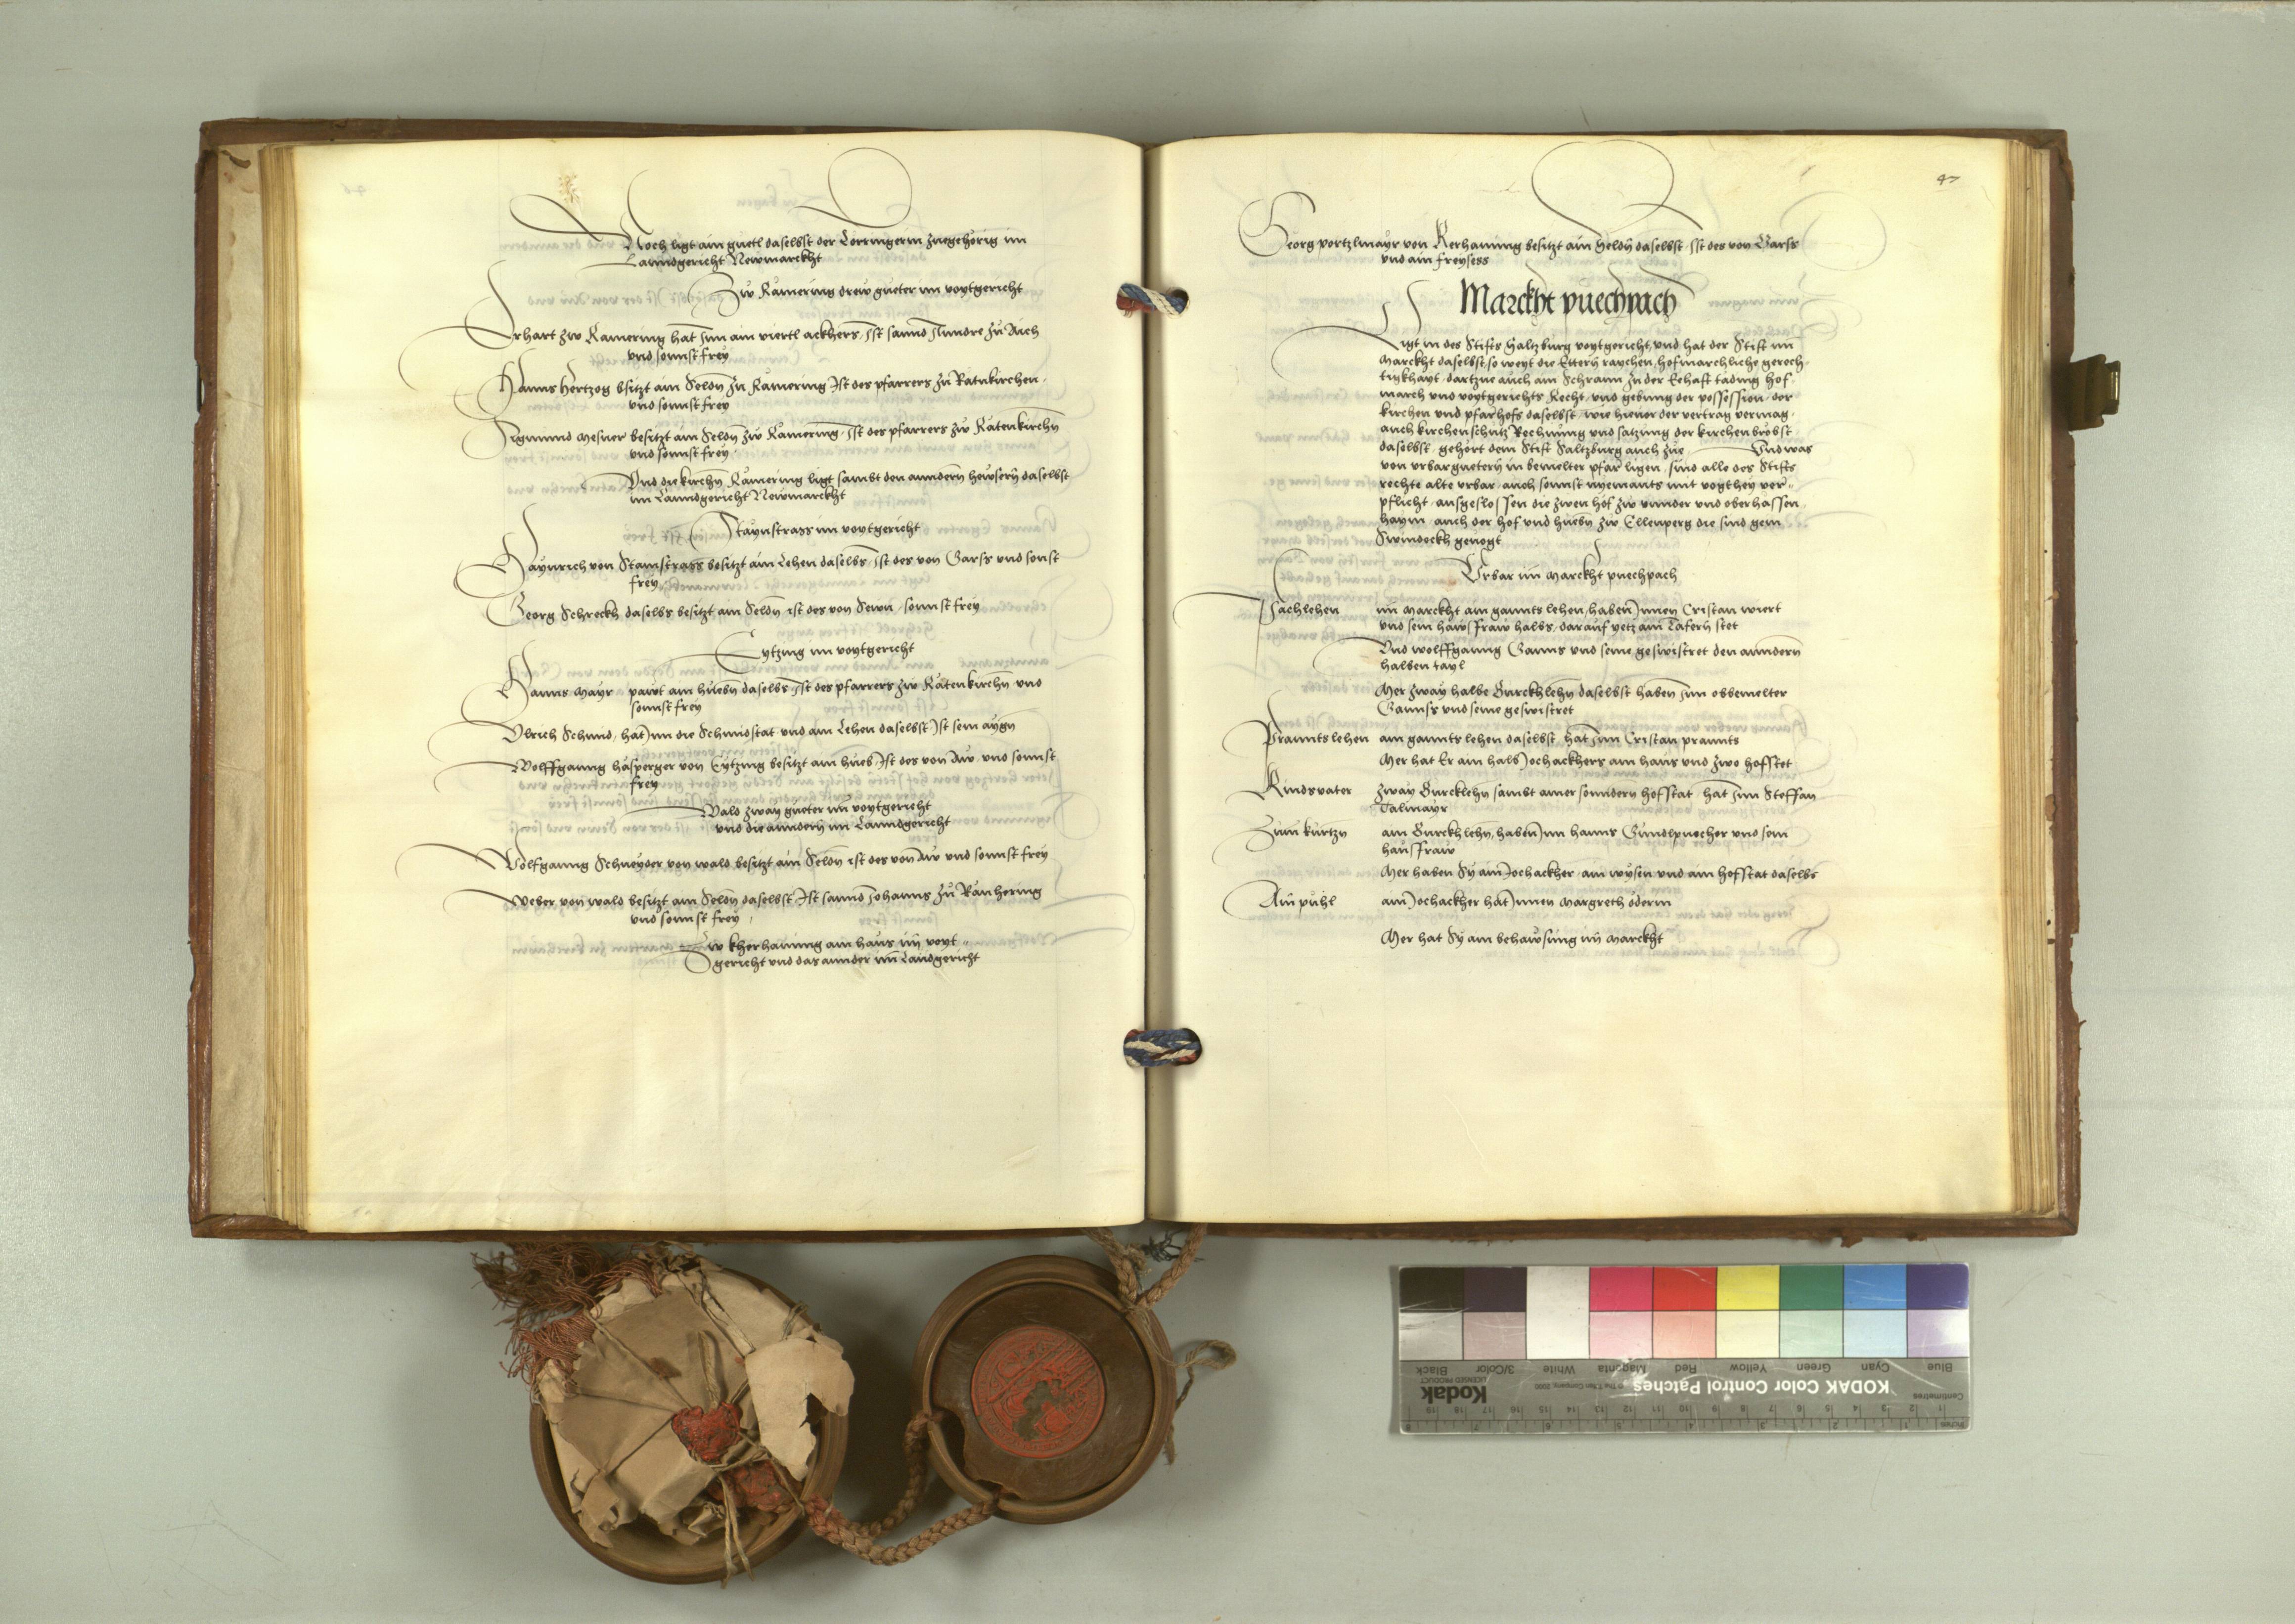 Noch ligt ain guetl daselbst der Torringerin zuegehorig im
Lanndgericht Newmarckht
Zw Kamering drew gueter im voytgericht
Erhart zw Kamering hat Inn ain viertl ackhers, Ist sannd Anndre zu Aich
vnd sonnst frey
Hanns Hertzog bsitzt ain Seldn zu Kamering Ist des pfarrers zu Ratnkirchen
vnd sonnst frey
Sigmund Mesner besitzt ain Seldn zw Kamering, Ist des pfarrers zw Ratenkirchn
vnd sonnst frey
Vnd die kirchn Kamering ligt sambt den anndern hewsern daselbst
im Lanndgericht Newmarckht
Staynstrass im voytgericht
Haynrich von Stainstrass besitzt ain Lehen daselbs, Ist des von Garss vnd sonst
frey
Georg Schreckh daselbs besitzt ain Seldn ist des von Sewn, sonnst frey
Eytzing im voytgericht
Hanns Mayr pawt ain huebn daselbs Ist des pfarrers zw Ratenkirchn vnd
sonnst frey
Vlrich Schmid, hat Inn die Schmidstat vnd ain Lehen daselbst Ist sein aygn
Wolffganng hasperger von Eytzing besitzt ain hueb Ist des von Aw vnd sonnst
frey
Wald zway gueter im voytgericht
vnd die anndern im Lanndgericht
Wolfganng Schneyder von wald besitzt ain Seldn ist des von Aw vnd sonnst frey
Weber von wald besitzt ain Seldn daselbst Ist sannd Johanns zu Ranhering
vnd sonnst frey
Zw kherhaming ain haus im voyt
gericht vnd das annder im Landgericht
47
Georg portzlmayr von Kerhaming besitzt ain Seldn daselbst, Ist des von Garss
vnd ain freysess
Marckht puechpach
Ligt in des Stifts Saltzburg voytgericht, vnd hat der Stift im
Marckht daselbst, so weyt die Ettern raychen, hofmarchliche gerech
tigkhayt, dartzue auch ain Schrann zu der Ehaft tading hof
march vnd voytgerichts Recht, vnd gebung der possession der
kirchen vnd pfarhofs daselbst, wie hieuor der vertrag vermag,
auch kirchenschutz Rechnung vnd satzung der kirchenbrobst
daselbst, gehort dem Stift Saltzburg auch zue Vnd was
von vrbarguetern in bemelter pfar ligen, sind alle des Stifts
rechte alte vrbar, auch sonnst nyemants mit vogthey ver
pflicht, ausgeslossen die zwen hof zw vnnder vnd oberhassen
haym, auch der hof vnd huebn zw Ellenperg die sind gem
Swindeckh geuogt
Vrbar im Marckht puechpach
Pachlehen im Marckht ain ganntz lehen, haben Innen Cristan wiert
vnd sein hawsfraw halbs, darauf yetz ain Tafern stet
Vnd wolffganng Ganns vnd seine geswistret den anndern
halben tayl
Mer zway halbe Burckhlehn daselbst haben Inn obbemelter
Gannss vnd seine geswistret
Pranntslehen ain ganntz lehen daselbst, hat Inn Cristan prannts
Mer hat Er ain halb Jochackhers ain haus vnd zwo hofstet
Kindsvater zway Burcklehn sambt ainer sonndern hofstat, hat Inn Steffan
Talmayr
Zum kurtzn ain Burckhlehn, haben Inn hanns Gundlpuecher vnd sein
hausfraw
Mer haben Sy ain Jochackher, ain wysen vnd ain hofstat daselbs
Am puhl ain Jochackher hat Innen Margreth oderin
Mer hat Sy ain behawsung im Marckht
Blue Cyan Green Yellow Red Magenta White 3/Color Black
KODAK Color Control Patches
Kodak
LICENSED PRODUCT
Centimetres
Inches